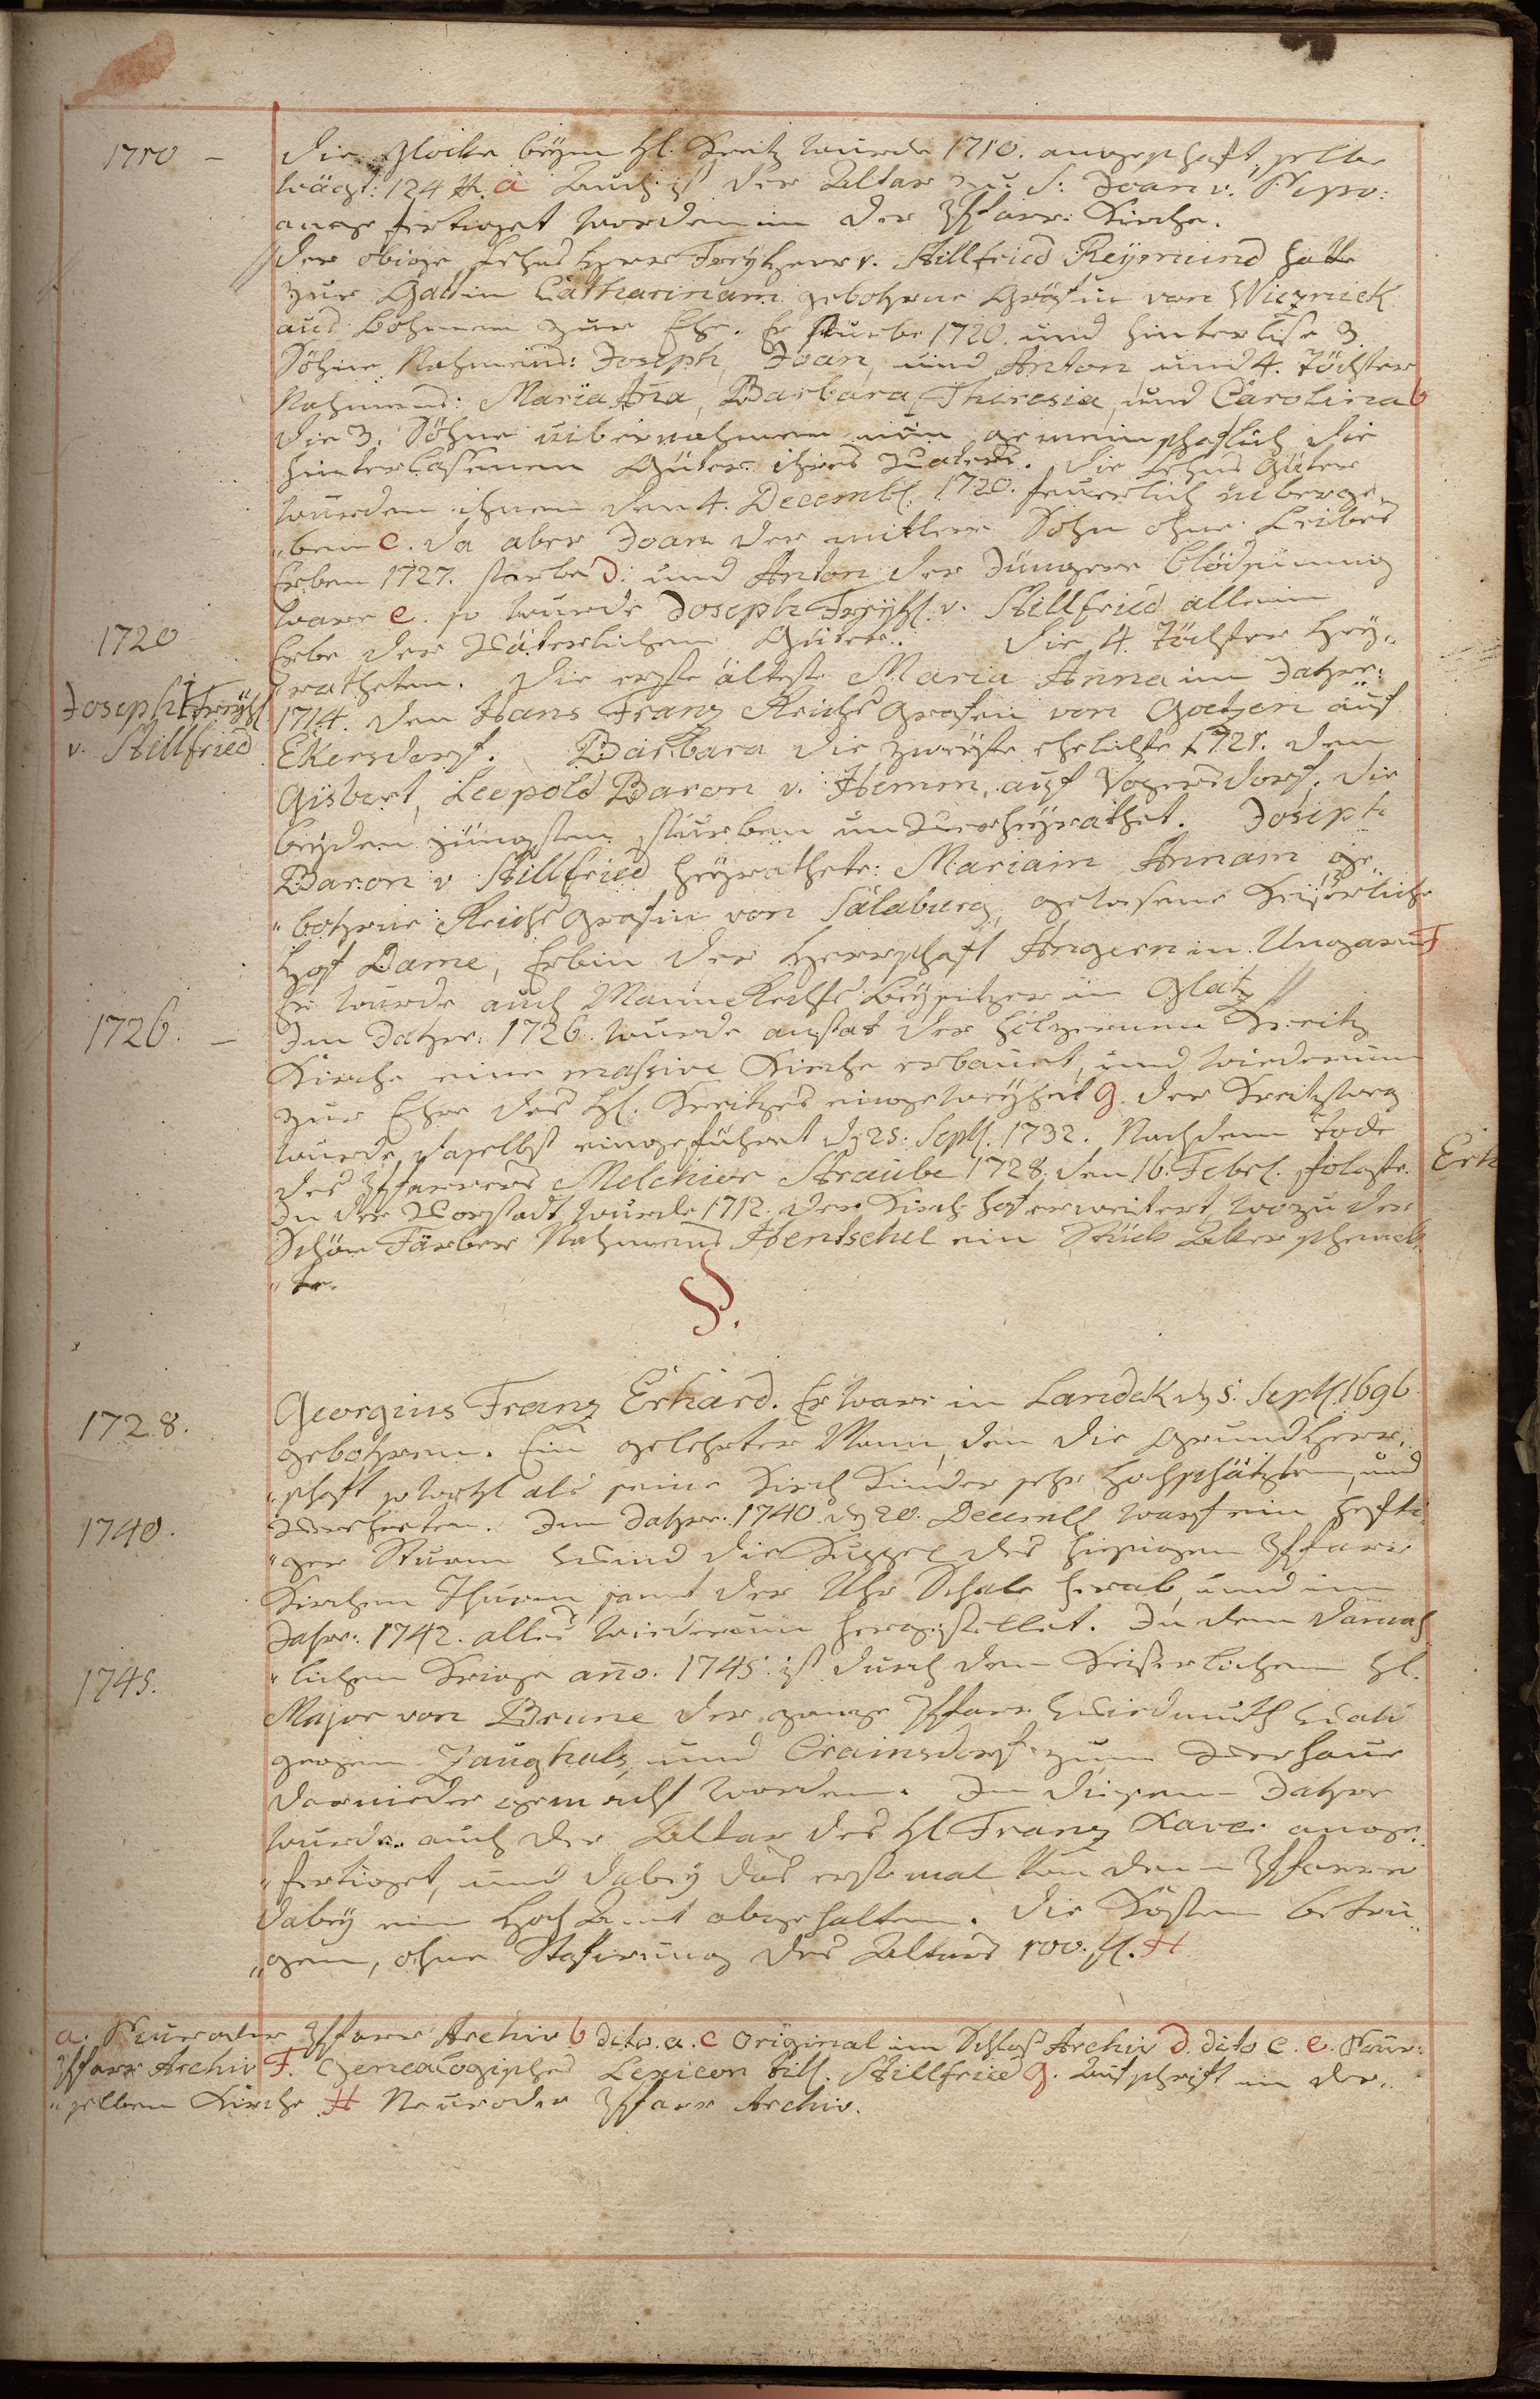 1710 –
Die Glocke beym hl. Kreitz wurde 1710. angeschaft, selbe
wägt: 124 ℔. a Auch ist der Altar zu S: Joan v. Nepo:
angefertiget worden in der Pfarr: Kirche.
Der obige Lehns Herr Freyherr v. Stillfried Reymund hatte
zur Gattin Catharinam gebohrne Gräfin von Wieznick
aus Bohmen zur Ehe. Er sturbe 1720. und hinterlise 3
Söhne Nahmens: Joseph, Joan, und Anton und 4. Töchter
Nahmens: Maria Aña, Barbara, Theresia, und Carolina b
Die 3. Söhne übernahmen nun gemeinschaftlich die
hinterlassenen Güter ihres Vaters. Die Lehns Güter
wurden ihnen den 4. Decembr. 1720. feuerlich überge„
„ben c. Da aber Joan der mitlere Sohn ohne Leibes
Erben 1727. starbe d: und Anton der Jüngere blödsinnig
ware e. so wurde Joseph Freyh. v. Stillfried allein
1720
Erbe der Väterlichen Güter. Die 4. Töchter hey„
Joseph Freyh.
v. Stillfried
ratheten. Die erste älteste Maria Anna im Jahre:
1714. den Hans Franz Reichs Grafen von Goetzen auf
Ekersdorf. Barbara die zweyte ehelichte 1721. den
Gisbert, Leopold Baron v. Hemm, auf Vogersdorf. die
beyden jüngsten sturben unverheyrathet. Joseph
Baron v Stillfried heyrathete: Mariam Annam ge„
„bohrne Reichs Grafin von Salaburg, gewesene Keiserliche
Hof Dame, Erbin der Herrschaft Angern in Ungarn F
Er wurde auch Manne Rechts Beysitzer in Glatz
1726. –
Im Jahre: 1726. wurde anstat der hölzernen Kreitz
Kirche eine massive Kirche erbauet, und wiederum
zur Ehre des hl. Kreitzes eingeweyhet g. der Kreitzweg
wurde daselbst eingeführet d 25. Septb. 1732. Nach dem Tode
des Pfarrers Melchior Straube 1728. den 16. Febr. folgte. Erh
In der Vorstadt wurde 1712. der Kirch hof erweitert wozu der
Schön Färber Nahmens Hentschel ein Stück Aker schenck
„te.
§.
1728.
Georgius Franz Erhard. Er ware in Landek d 5. Septb. 1696
gebohren. Ein gelehrter Mann, den die Grundherr„
„schaft so wohl als seine Kirch Kinder sehr hochschätzten, und
1740.
verehrten. Im Jahre. 1740. d 20. Decembr warf ein hefti„
„ger Sturm Wind die Kuppel des hiesigen Pfarr
Kirchen Thurm samt der Uhr Schale herab, und im
Jahre: 1742. alles wiederum hergestellet. In dem damah
1745.
„lichen Kriege año. 1745. ist durch den Keiserlichen H.
Major von Brune der ganze Pfarr Wiedmuth Wald
gegen Zaughals und Crainsdorf zum Verhaue
darnieder gemacht worden. In diesem Jahre
wurde auch der Altar des hl Franz Xaver ange„
„fertiget, und dabey das erste mal von dem Pfarrer
dabey ein Hoch Amt abgehalten. Die Kosten betru„
„gen, ohne Stafirung des Altars 100. fl. H
a. Neuroder Pfarr Archiv b dito. a. c Original im Schloß Archiv d. dito c. e. Neur:
Pfarr Archiv F. Genealogisches Lexicon Titl. Stillfried g. Aufschrift in der„
„selben Kirche H Neuroder Pfarr Archiv.